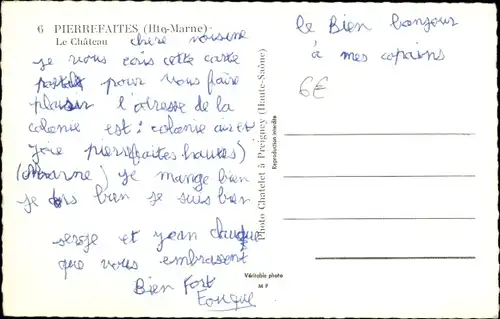 6 PIERREFAITES (Hte-Marne)
Le Château
chère voisine
je vous ecris cette carte
postale pour vous faire
plaisir l'adresse de la
colonie est: colonie air et
joie pierrefaites hautes)
(Marne) je mange bien
je dors bien je suis bien
serge et jean claude
que vous embrassent
Bien Fort
le Bien bonjour
à mes copains
6€
Photo Chatelet à Preigney (Haute-Saône)
Reproduction interdite
Véritable photo
M F